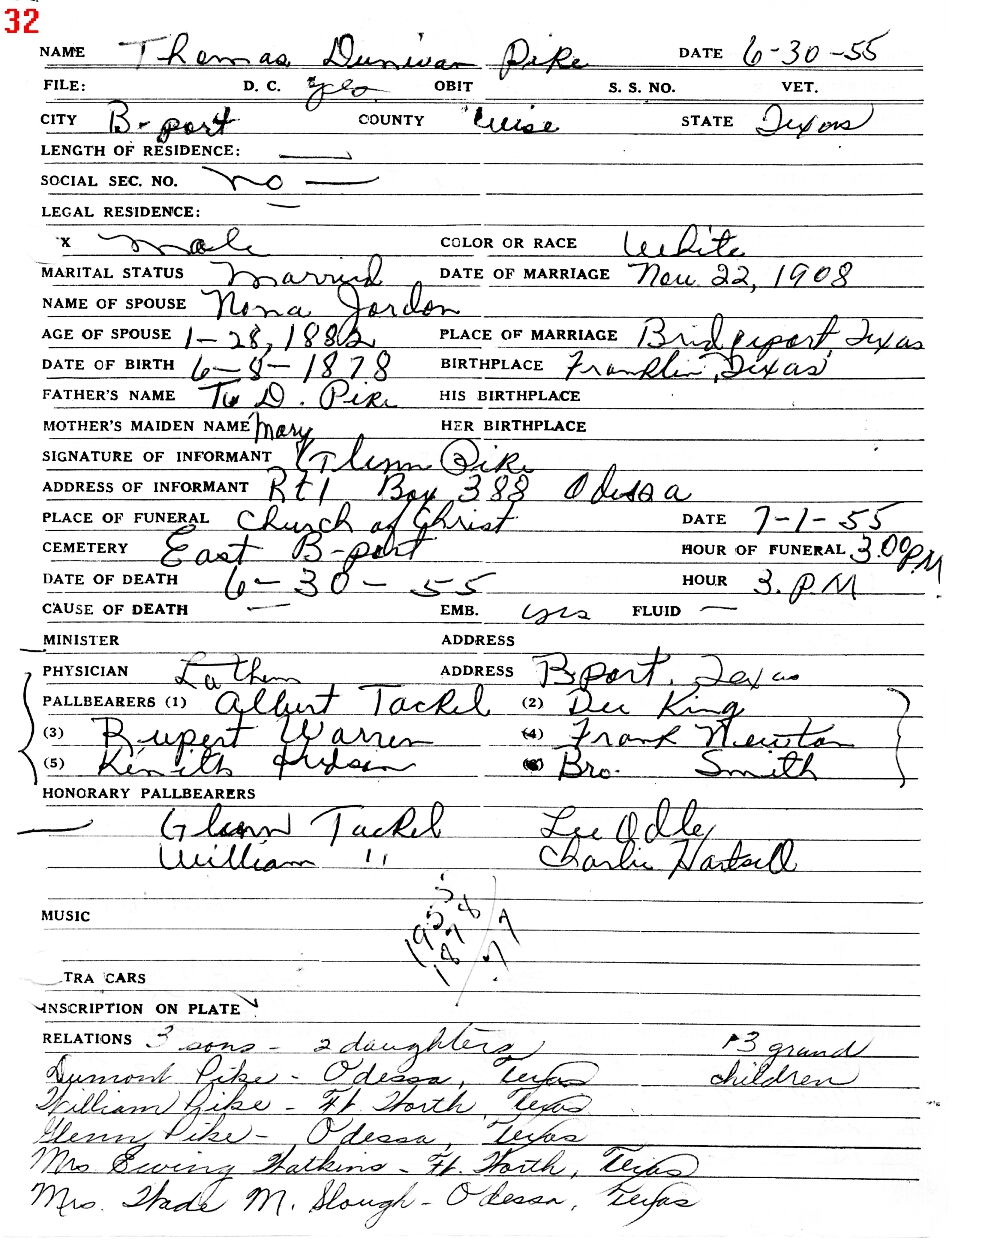 32
NAME Thomas Dunivan Pike DATE 6-30-55
FILE: D. C. yes OBIT S. S. NO. VET.
CITY B-port COUNTY Wise STATE Texas
LENGTH OF RESIDENCE: —
SOCIAL SEC. NO. no —
LEGAL RESIDENCE: —
X male COLOR OR RACE White
MARITAL STATUS Married DATE OF MARRIAGE Nov. 22, 1908
NAME OF SPOUSE Nona Jordon
AGE OF SPOUSE 1-28, 1882 PLACE OF MARRIAGE Bridgeport, Texas
DATE OF BIRTH 6-8-1878 BIRTHPLACE Franklin, Texas
FATHER'S NAME D. Pike HIS BIRTHPLACE
MOTHER'S MAIDEN NAME Mary HER BIRTHPLACE
SIGNATURE OF INFORMANT Glenn Pike
ADDRESS OF INFORMANT Rt 1 Box 388 Odessa
PLACE OF FUNERAL Church of Christ DATE 7-1-55
CEMETERY East B-port HOUR OF FUNERAL 3:00 P.M
DATE OF DEATH 6-30-55 HOUR 3. P.M
CAUSE OF DEATH — EMB. yes FLUID —
MINISTER ADDRESS
PHYSICIAN Lathem ADDRESS B port, Texas
PALLBEARERS (1) Albert Tackel (2) Dee King
(3) Rupert Warren (4) Frank Newton
(5) Kenith Hudson (6) Bro. Smith
HONORARY PALLBEARERS
— Glenn Tackel Lee Odle
William " Charlie Hartsell
1955
1878
77
MUSIC
TRA CARS
INSCRIPTION ON PLATE
RELATIONS 3 sons - 2 daughters 13 grand
Dumont Pike - Odessa, Texas children
William Pike - Ft. Worth, Texas
Glenn Pike - Odessa, Texas
Mrs Ewing Watkins - Ft. Worth, Texas
Mrs. Wade M. Slough - Odessa, Texas